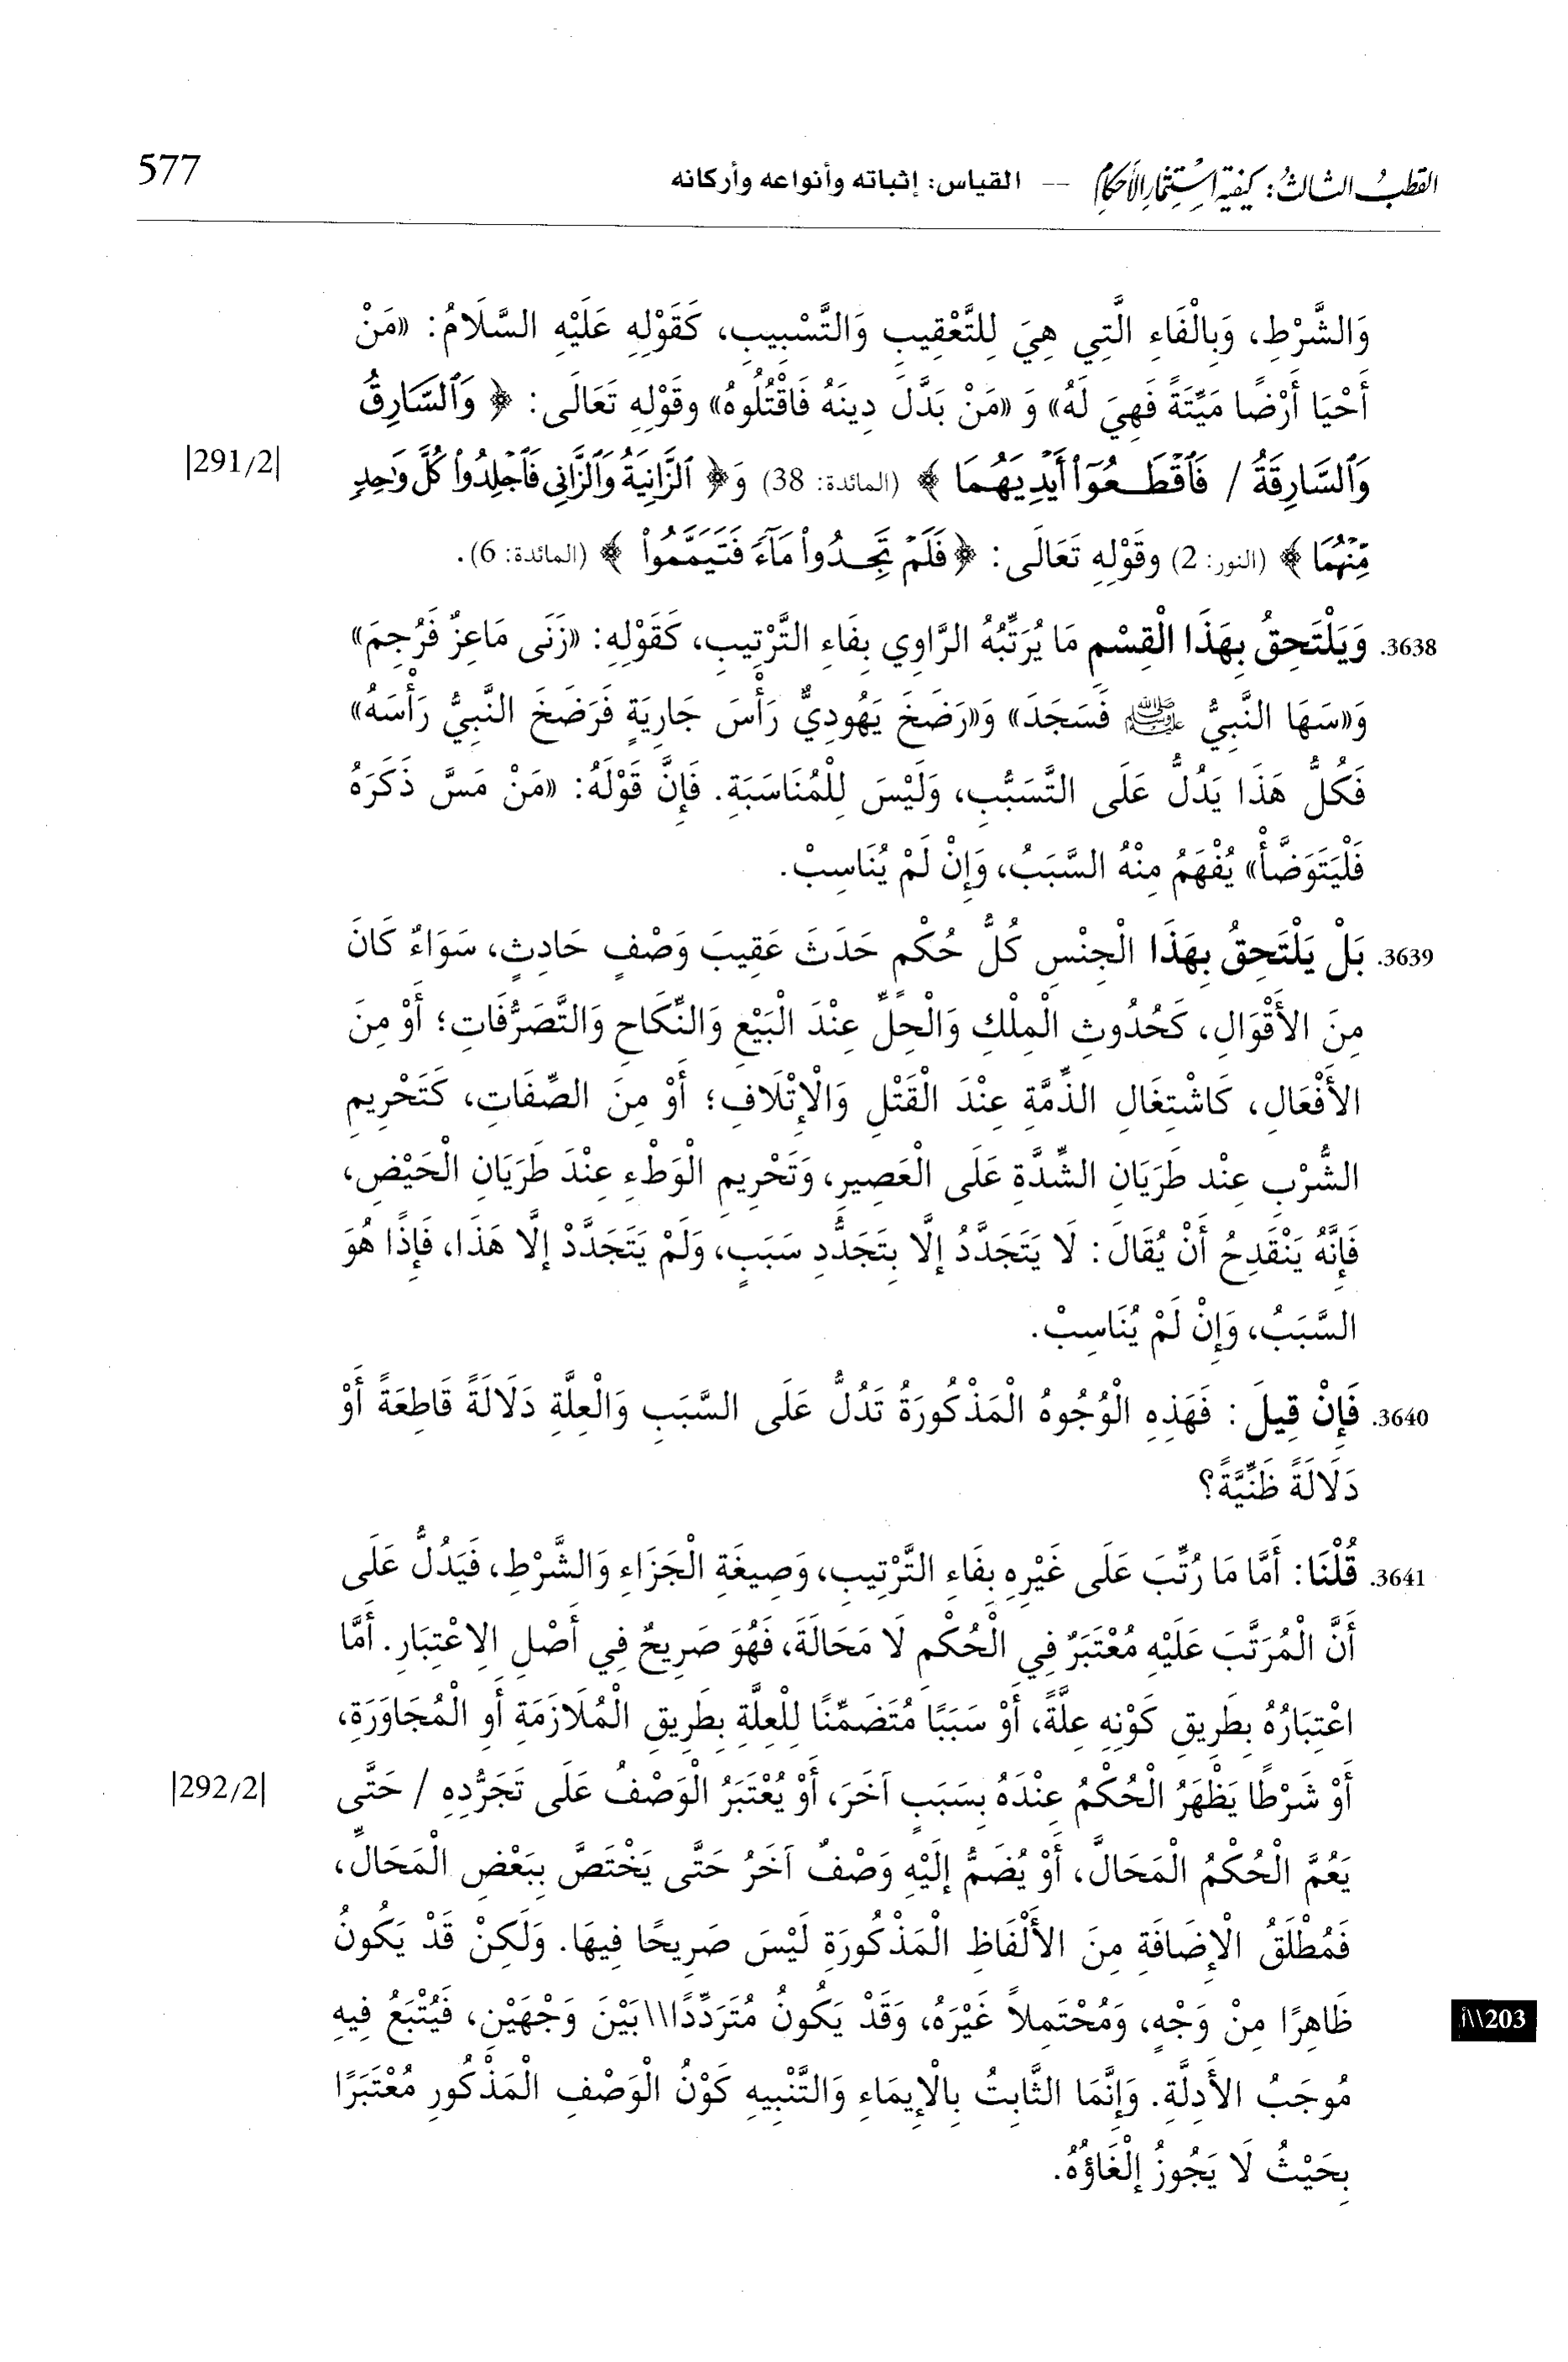 القطب الثالث: كيفية استثمار الأحكام -- القياس: إثباته وأنواعه وأركانه 577
وَالشَّرْطِ، وَبِالْفَاءِ الَّتِي هِيَ لِلتَّعْقِيبِ وَالتَّسْبِيبِ، كَقَوْلِهِ عَلَيْهِ السَّلَامُ: «مَنْ
أَحْيَا أَرْضًا مَيِّتَةً فَهِيَ لَهُ» وَ «مَنْ بَدَّلَ دِينَهُ فَاقْتُلُوهُ» وقَوْلِهِ تَعَالَى: ﴿ وَٱلسَّارِقُ
وَٱلسَّارِقَةُ / فَٱقْطَعُوٓا۟ أَيْدِيَهُمَا ﴾ (المائدة: 38) وَ﴿ ٱلزَّانِيَةُ وَٱلزَّانِى فَٱجْلِدُوا۟ كُلَّ وَٰحِدٍ |291/2|
مِّنْهُمَا ﴾ (النور: 2) وقَوْلِهِ تَعَالَى: ﴿ فَلَمْ تَجِدُوا۟ مَآءً فَتَيَمَّمُوا۟ ﴾ (المائدة: 6).
3638. وَيَلْتَحِقُ بِهَذَا الْقِسْمِ مَا يُرَتِّبُهُ الرَّاوِي بِفَاءِ التَّرْتِيبِ، كَقَوْلِهِ: «زَنَى مَاعِزٌ فَرُجِمَ»
وَ«سَهَا النَّبِيُّ ﷺ فَسَجَدَ» وَ«رَضَخَ يَهُودِيٌّ رَأْسَ جَارِيَةٍ فَرَضَخَ النَّبِيُّ رَأْسَهُ»
فَكُلُّ هَذَا يَدُلُّ عَلَى التَّسَبُّبِ، وَلَيْسَ لِلْمُنَاسَبَةِ. فَإِنَّ قَوْلَهُ: «مَنْ مَسَّ ذَكَرَهُ
فَلْيَتَوَضَّأْ» يُفْهَمُ مِنْهُ السَّبَبُ، وَإِنْ لَمْ يُنَاسِبْ.
3639. بَلْ يَلْتَحِقُ بِهَذَا الْجِنْسِ كُلُّ حُكْمٍ حَدَثَ عَقِيبَ وَصْفٍ حَادِثٍ، سَوَاءٌ كَانَ
مِنَ الأَقْوَالِ، كَحُدُوثِ الْمِلْكِ وَالْحِلِّ عِنْدَ الْبَيْعِ وَالنِّكَاحِ وَالتَّصَرُّفَاتِ؛ أَوْ مِنَ
الأَفْعَالِ، كَاشْتِغَالِ الذِّمَّةِ عِنْدَ الْقَتْلِ وَالْإِتْلَافِ؛ أَوْ مِنَ الصِّفَاتِ، كَتَحْرِيمِ
الشُّرْبِ عِنْد طَرَيَانِ الشِّدَّةِ عَلَى الْعَصِيرِ، وَتَحْرِيمِ الْوَطْءِ عِنْدَ طَرَيَانِ الْحَيْضِ،
فَإِنَّهُ يَنْقَدِحُ أَنْ يُقَالَ: لَا يَتَجَدَّدُ إِلَّا بِتَجَدُّدِ سَبَبٍ، وَلَمْ يَتَجَدَّدْ إِلَّا هَذَا، فَإِذًا هُوَ
السَّبَبُ، وَإِنْ لَمْ يُنَاسِبْ.
3640. فَإِنْ قِيلَ: فَهَذِهِ الْوُجُوهُ الْمَذْكُورَةُ تَدُلُّ عَلَى السَّبَبِ وَالْعِلَّةِ دَلَالَةً قَاطِعَةً أَوْ
دَلَالَةً ظَنِّيَّةً؟
3641. قُلْنَا: أَمَّا مَا رُتِّبَ عَلَى غَيْرِهِ بِفَاءِ التَّرْتِيبِ، وَصِيغَةِ الْجَزَاءِ وَالشَّرْطِ، فَيَدُلُّ عَلَى
أَنَّ الْمُرَتَّبَ عَلَيْهِ مُعْتَبَرٌ فِي الْحُكْمِ لَا مَحَالَةَ، فَهُوَ صَرِيحٌ فِي أَصْلِ الِاعْتِبَارِ. أَمَّا
اعْتِبَارُهُ بِطَرِيقِ كَوْنِهِ عِلَّةً، أَوْ سَبَبًا مُتَضَمِّنًا لِلْعِلَّةِ بِطَرِيقِ الْمُلَازَمَةِ أَوِ الْمُجَاوَرَةِ،
أَوْ شَرْطًا يَظْهَرُ الْحُكْمُ عِنْدَهُ بِسَبَبٍ آخَرَ، أَوْ يُعْتَبَرُ الْوَصْفُ عَلَى تَجَرُّدِهِ / حَتَّى |292/2|
يَعُمَّ الْحُكْمُ الْمَحَالَّ، أَوْ يُضَمُّ إِلَيْهِ وَصْفٌ آخَرُ حَتَّى يَخْتَصَّ بِبَعْضِ الْمَحَالِّ،
فَمُطْلَقُ الْإِضَافَةِ مِنَ الأَلْفَاظِ الْمَذْكُورَةِ لَيْسَ صَرِيحًا فِيهَا. وَلَكِنْ قَدْ يَكُونُ
ظَاهِرًا مِنْ وَجْهٍ، وَمُحْتَمِلاً غَيْرَهُ، وَقَدْ يَكُونُ مُتَرَدِّدًا\\بَيْنَ وَجْهَيْنِ، فَيُتْبَعُ فِيهِ 203\\أ
مُوجَبُ الأَدِلَّةِ. وَإِنَّمَا الثَّابِتُ بِالْإِيمَاءِ وَالتَّنْبِيهِ كَوْنُ الْوَصْفِ الْمَذْكُورِ مُعْتَبَرًا
بِحَيْثُ لَا يَجُوزُ إِلْغَاؤُهُ.